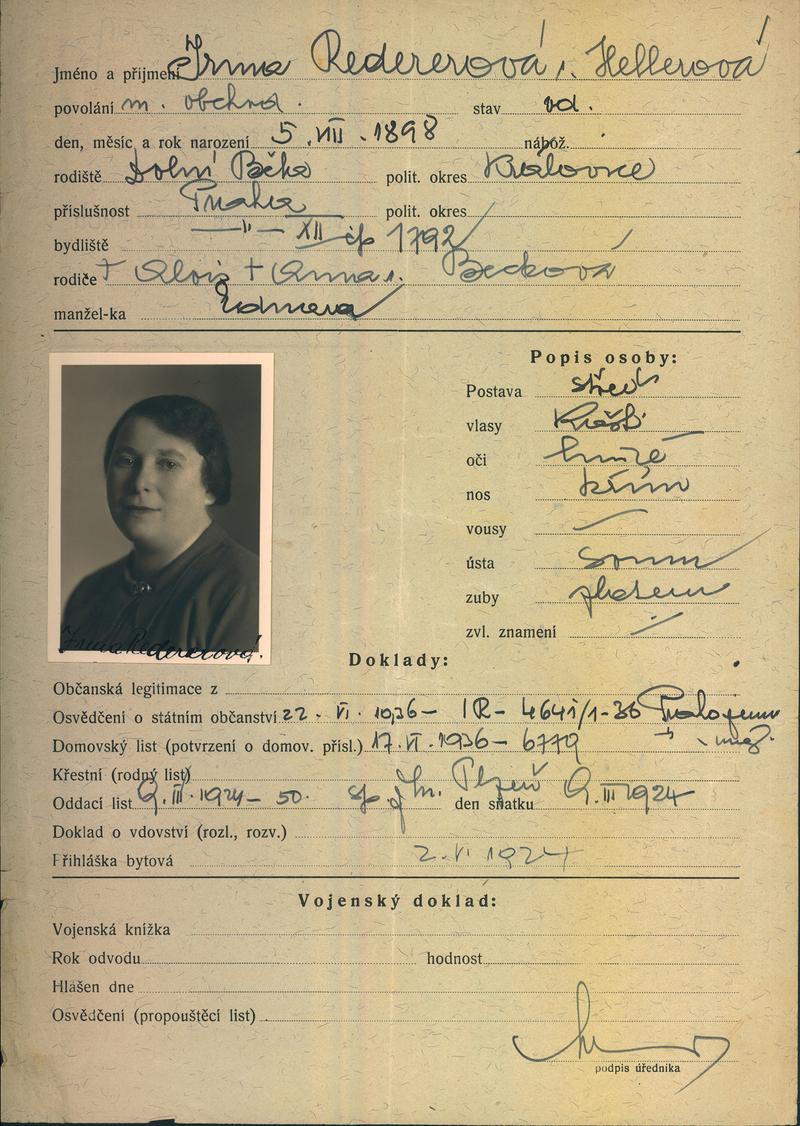 Jméno a příjmení Irma Redererová r. Hellerová
povolání m. obchod. stav vd.
den, měsíc a rok narození 5. VII. 1898 nábož.
rodiště Dolní polit. okres
příslušnost Praha polit. okres
bydliště -"- XII čp 1792
rodiče † Alois † Anna r. Becková
manžel-ka
Popis osoby:
Postava střed
vlasy
oči hnědé
nos
vousy
ústa soum
zuby
zvl. znamení
Irma Redererová.
Doklady:
Občanská legitimace z
Osvědčení o státním občanství 22. VI. 1936 - IR - 4641/1-36
Domovský list (potvrzení o domov. přísl.) 17. VI. 1936 - 6779
Křestní (rodný list)
Oddací list 9. III. 1924 - 50. Plzeň den sňatku 9. III 1924
Doklad o vdovství (rozl., rozv.)
Přihláška bytová 2. VI 1924
Vojenský doklad:
Vojenská knížka
Rok odvodu hodnost
Hlášen dne
Osvědčení (propouštěcí list)
podpis úředníka